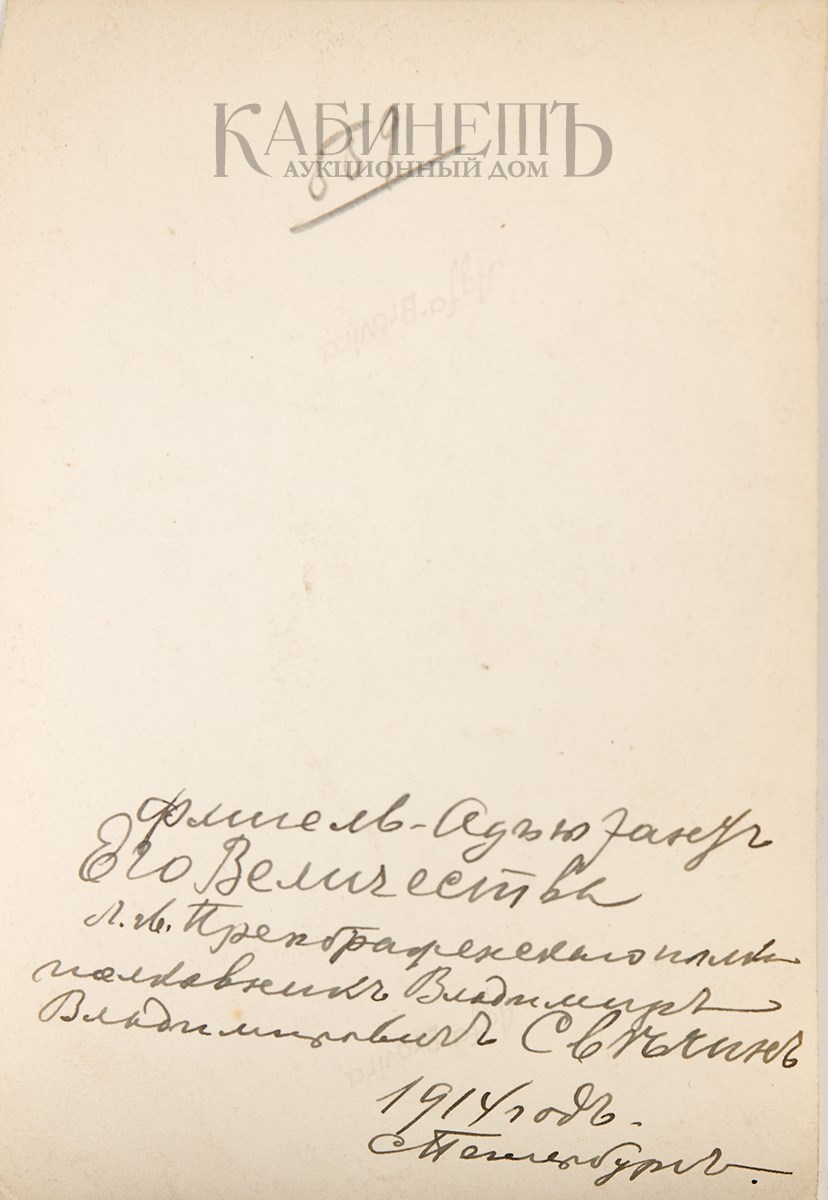 КАБИНЕТЪ
АУКЦИОННЫЙ ДОМ
Флигель-Адъютантъ
Его Величества
Л.-Гв. Преображенскаго полка
полковникъ Владимиръ
Владимировичъ Свѣчинъ
1914 годъ.
СПетербургъ.